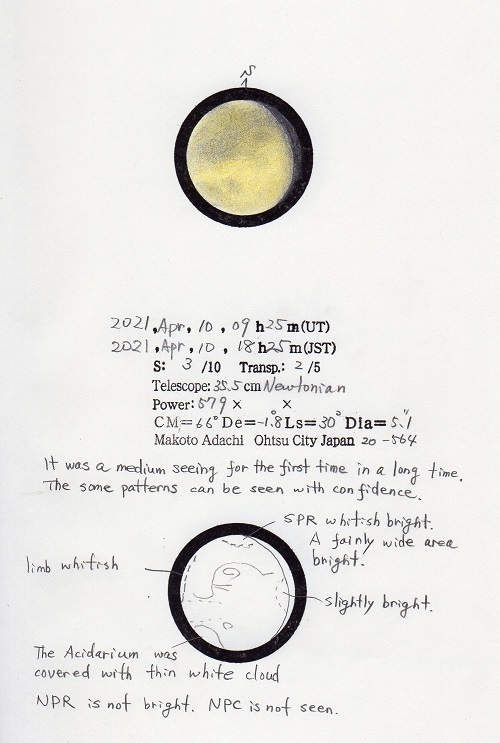 S
2021, Apr, 10, 09 h25m(UT)
2021, Apr, 10, 18 h25m(JST)
S: 3 /10 Transp.: 2 /5
Telescope: 35.5 cm Newtonian
Power: 579 × ×
CM=66° De=-1.8° Ls=30° Dia=5.1"
Makoto Adachi Ohtsu City Japan 20-564
It was a medium seeing for the first time in a long time.
The some patterns can be seen with confidence.
SPR whitish bright.
A fainly wide area
bright.
limb whitish
slightly bright.
The Acidarium was
covered with thin white cloud
NPR is not bright. NPC is not seen.